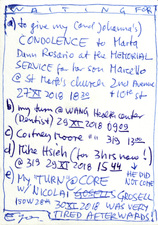 WAITING FOR:
a) to give my (and Johanna's)
CONDOLENCE to Marta
Dann Rosario at the MEMORIAL
SERVICE for her son Marcello
@ St Mark's church 2nd Avenue
27 XI 2018 18:30 + 10th st
b) my turn @ WANG Health Center
(Dentist) 29 XI 2018 0909
c) Cortney Moore 319 13
d) Mike Hsieh (for 3hrs now!)
@ 319 29 XI 2018 15 44
HE DID NOT COME
e) My TURN @ CORE
w/ NICOLAI GOSELL
150W 28th 30 XI 2018 WAS VERY
TIRED AFTERWARDS!